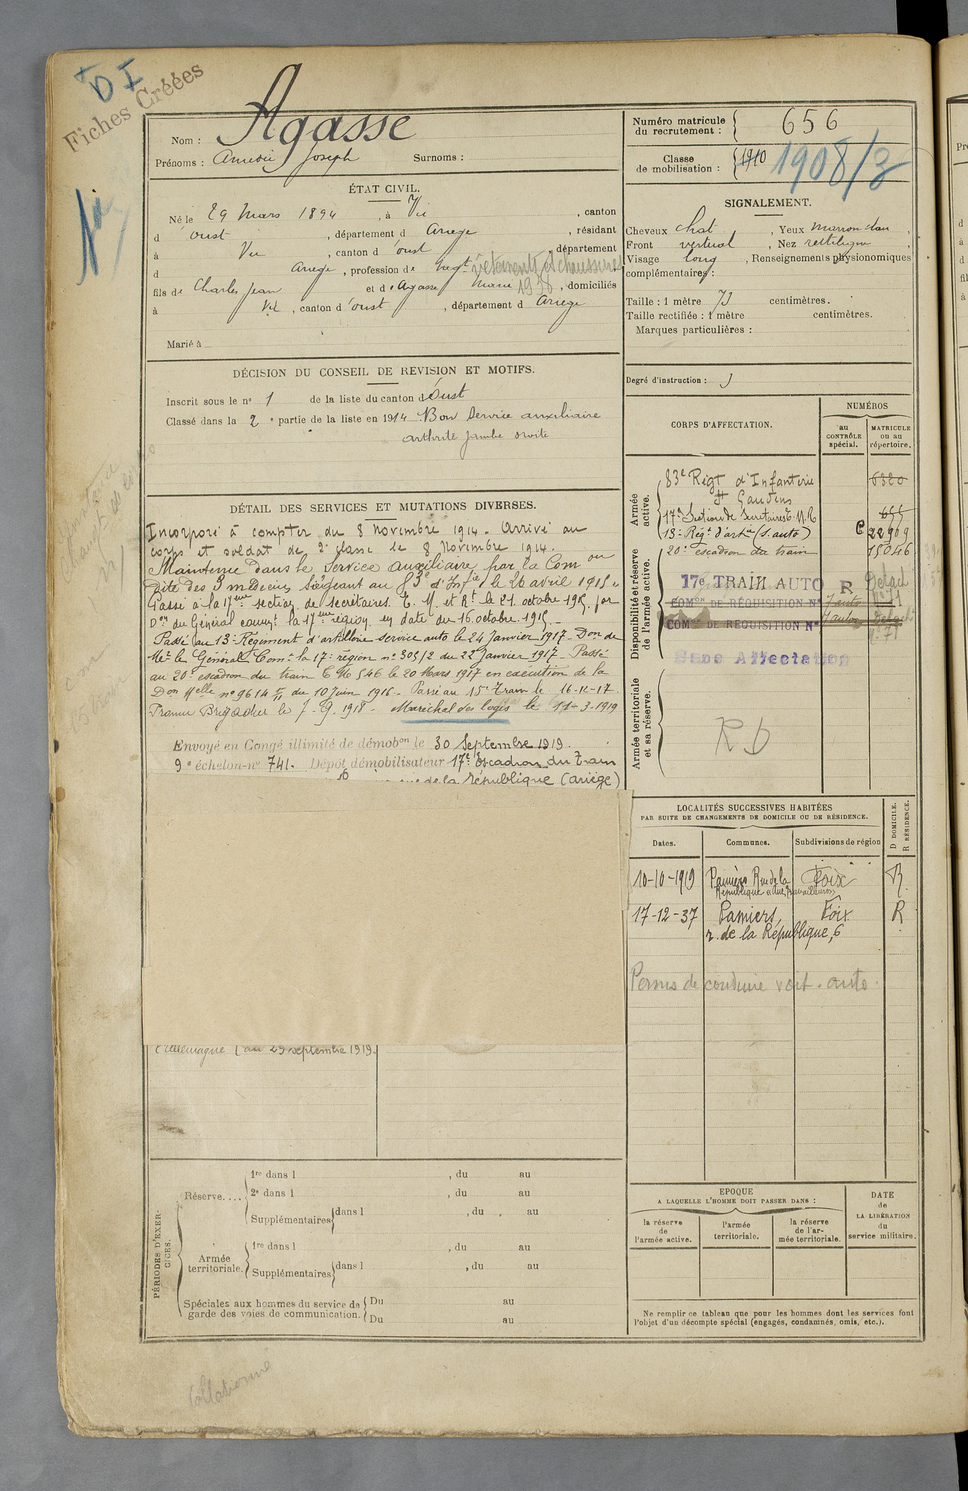 D I
Fiches Créées
Nom : Agasse
Prénoms : Amédée Joseph Surnoms :
Numéro matricule du recrutement : 656
Classe de mobilisation : 1910 1908/3
ÉTAT CIVIL.
Né le 29 Mars 1894, à Vic, canton
d'oust, département d Ariège, résidant
à Vic, canton d'oust, département
d Ariège, profession de negt vêtements et chaussures
fils de Charles Jean et de Agasse Marie 1938, domiciliés
à Vic, canton d'oust, département d Ariège
Marié à
SIGNALEMENT.
Cheveux chat, Yeux marron clair,
Front vertical, Nez rectiligne
Visage long, Renseignements physionomiques
complémentaires :
Taille : 1 mètre 73 centimètres.
Taille rectifiée : 1 mètre centimètres.
Marques particulières :
DÉCISION DU CONSEIL DE REVISION ET MOTIFS.
Inscrit sous le n° 1 de la liste du canton d'Oust
Classé dans la 2e partie de la liste en 1914 Bon service auxiliaire
arthrite jambe droite
Degré d'instruction : 3
CORPS D'AFFECTATION.
NUMÉROS
au CONTRÔLE spécial.
MATRICULE ou au répertoire.
Armée active.
83e Régt d'Infanterie 6320
St Gaudens
17e Section de Secrétaires E.M.R 655
13e Regt d'artie (s. auto) C 22909
20e escadron du train 15046
Disponibilité et réserve de l'armée active.
17e TRAIN AUTO R
COMon DE RÉQUISITION N°
COMon DE REQUISITION N°
Sans Affectation
Armée territoriale et sa réserve.
R D
DÉTAIL DES SERVICES ET MUTATIONS DIVERSES.
Incorporé à compter du 8 Novembre 1914. Arrivé au
corps et soldat de 2e classe le 8 Novembre 1914.
Maintenu dans le Service Auxiliaire par la Comon
dite des 3 médecins siégeant au 83e d'Infie le 26 avril 1915.
Passé à la 17eme section de secrétaires E. M. et Rt le 21 octobre 1915 par
Don du Général commt la 17eme région en date du 16 octobre 1915.
Passé au 13e Régiment d'artillerie service auto le 24 Janvier 1917. Don de
Mr le Général Comt la 17e région n° 305/2 du 22 Janvier 1917. Passé
au 20e escadron du train C M 546 le 20 Mars 1917 en exécution de la
Don Mlle n° 9614 du 10 Juin 1916. Passé au 15e Train le 16-12-17
Promu Brigadier le 7-9-1918. Maréchal des logis le 11-3-1919
Envoyé en Congé illimité de démobon le 30 Septembre 1919.
9e échelon n° 741. Dépôt démobilisateur 17e Escadron du Train
rue de la République (Ariège)
l'Allemagne au 29 septembre 1919.
LOCALITÉS SUCCESSIVES HABITÉES
PAR SUITE DE CHANGEMENTS DE DOMICILE OU DE RÉSIDENCE.
D DOMICILE.
R RÉSIDENCE.
Dates. Communes. Subdivisions de région
10-10-1919 Pamiers Rue de la République Foix R.
17-12-37 Pamiers, Foix R
r. de la République, 6
Permis de conduire voit. auto
PÉRIODES D'EXERCICES.
Réserve.... 1re dans l , du au
2e dans l , du au
Supplémentaires dans l , du au
Armée territoriale. 1re dans l , du au
Supplémentaires dans l , du au
Spéciales aux hommes du service de garde des voies de communication. Du au
Du au
EPOQUE
A LAQUELLE L'HOMME DOIT PASSER DANS :
la réserve de l'armée active.
l'armée territoriale.
la réserve de l'armée territoriale.
DATE de LA LIBÉRATION du service militaire.
Ne remplir ce tableau que pour les hommes dont les services font
l'objet d'un décompte spécial (engagés, condamnés, omis, etc.).
Collationné